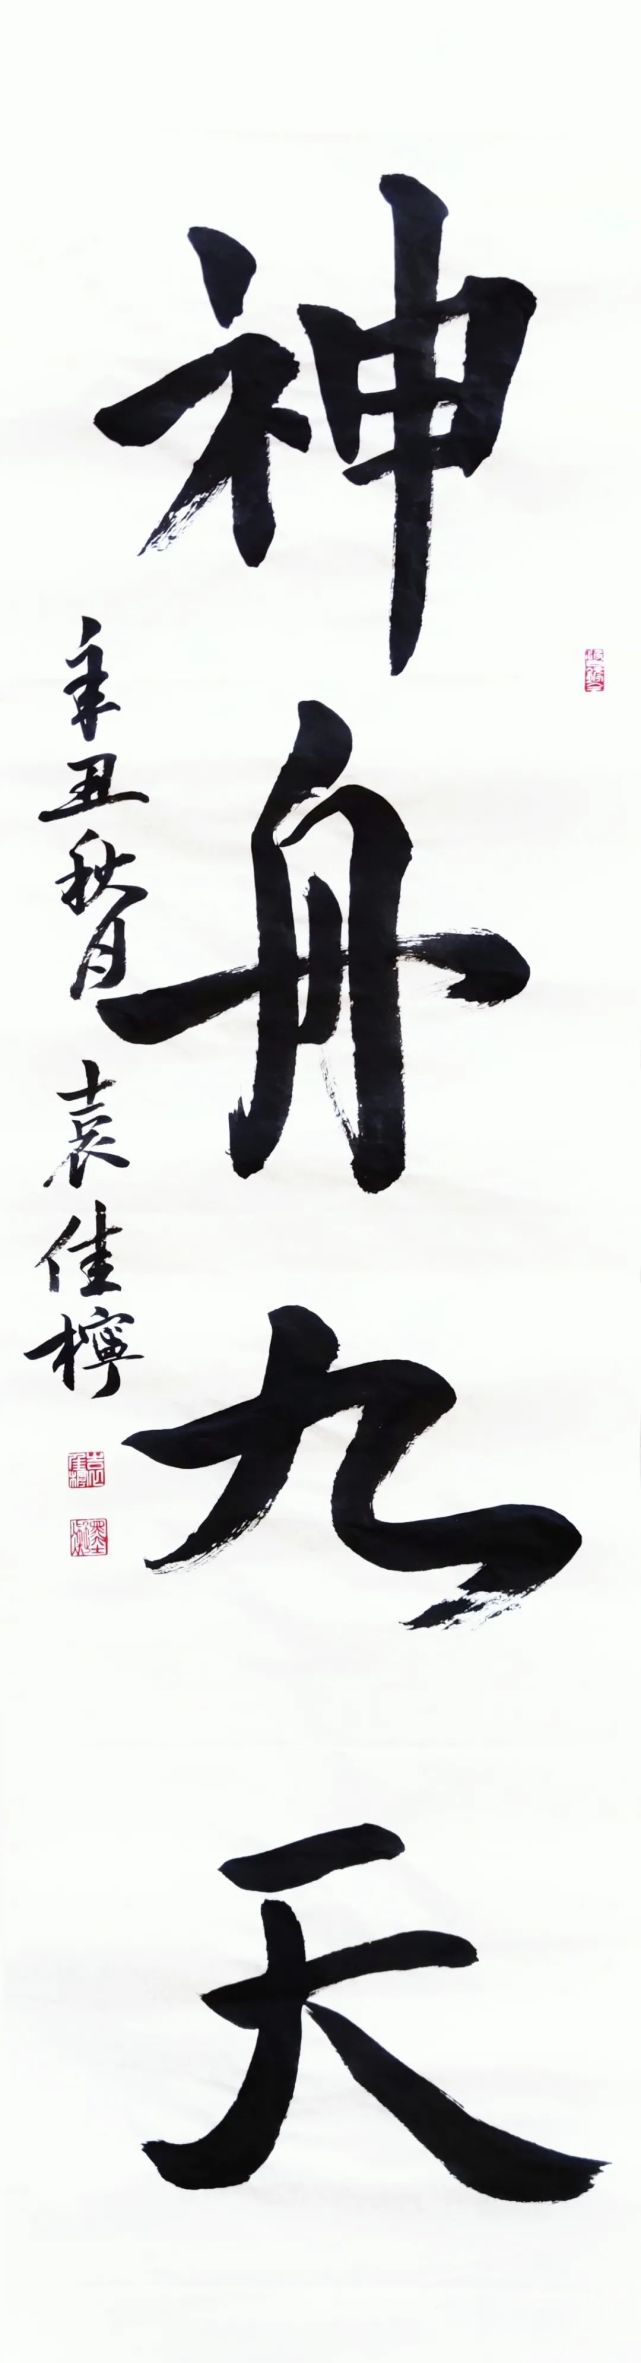 神舟九天
辛丑秋月 袁佳檸